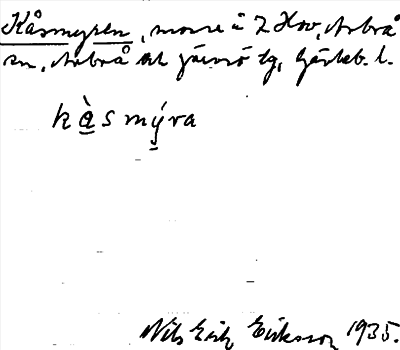 Kåsmyren, mosse å 7 Hov, Arbrå
sn, Arbrå och Järvsö tg, Gävleb. l.
kàsmýra
Nils Erik Eriksson 1935.